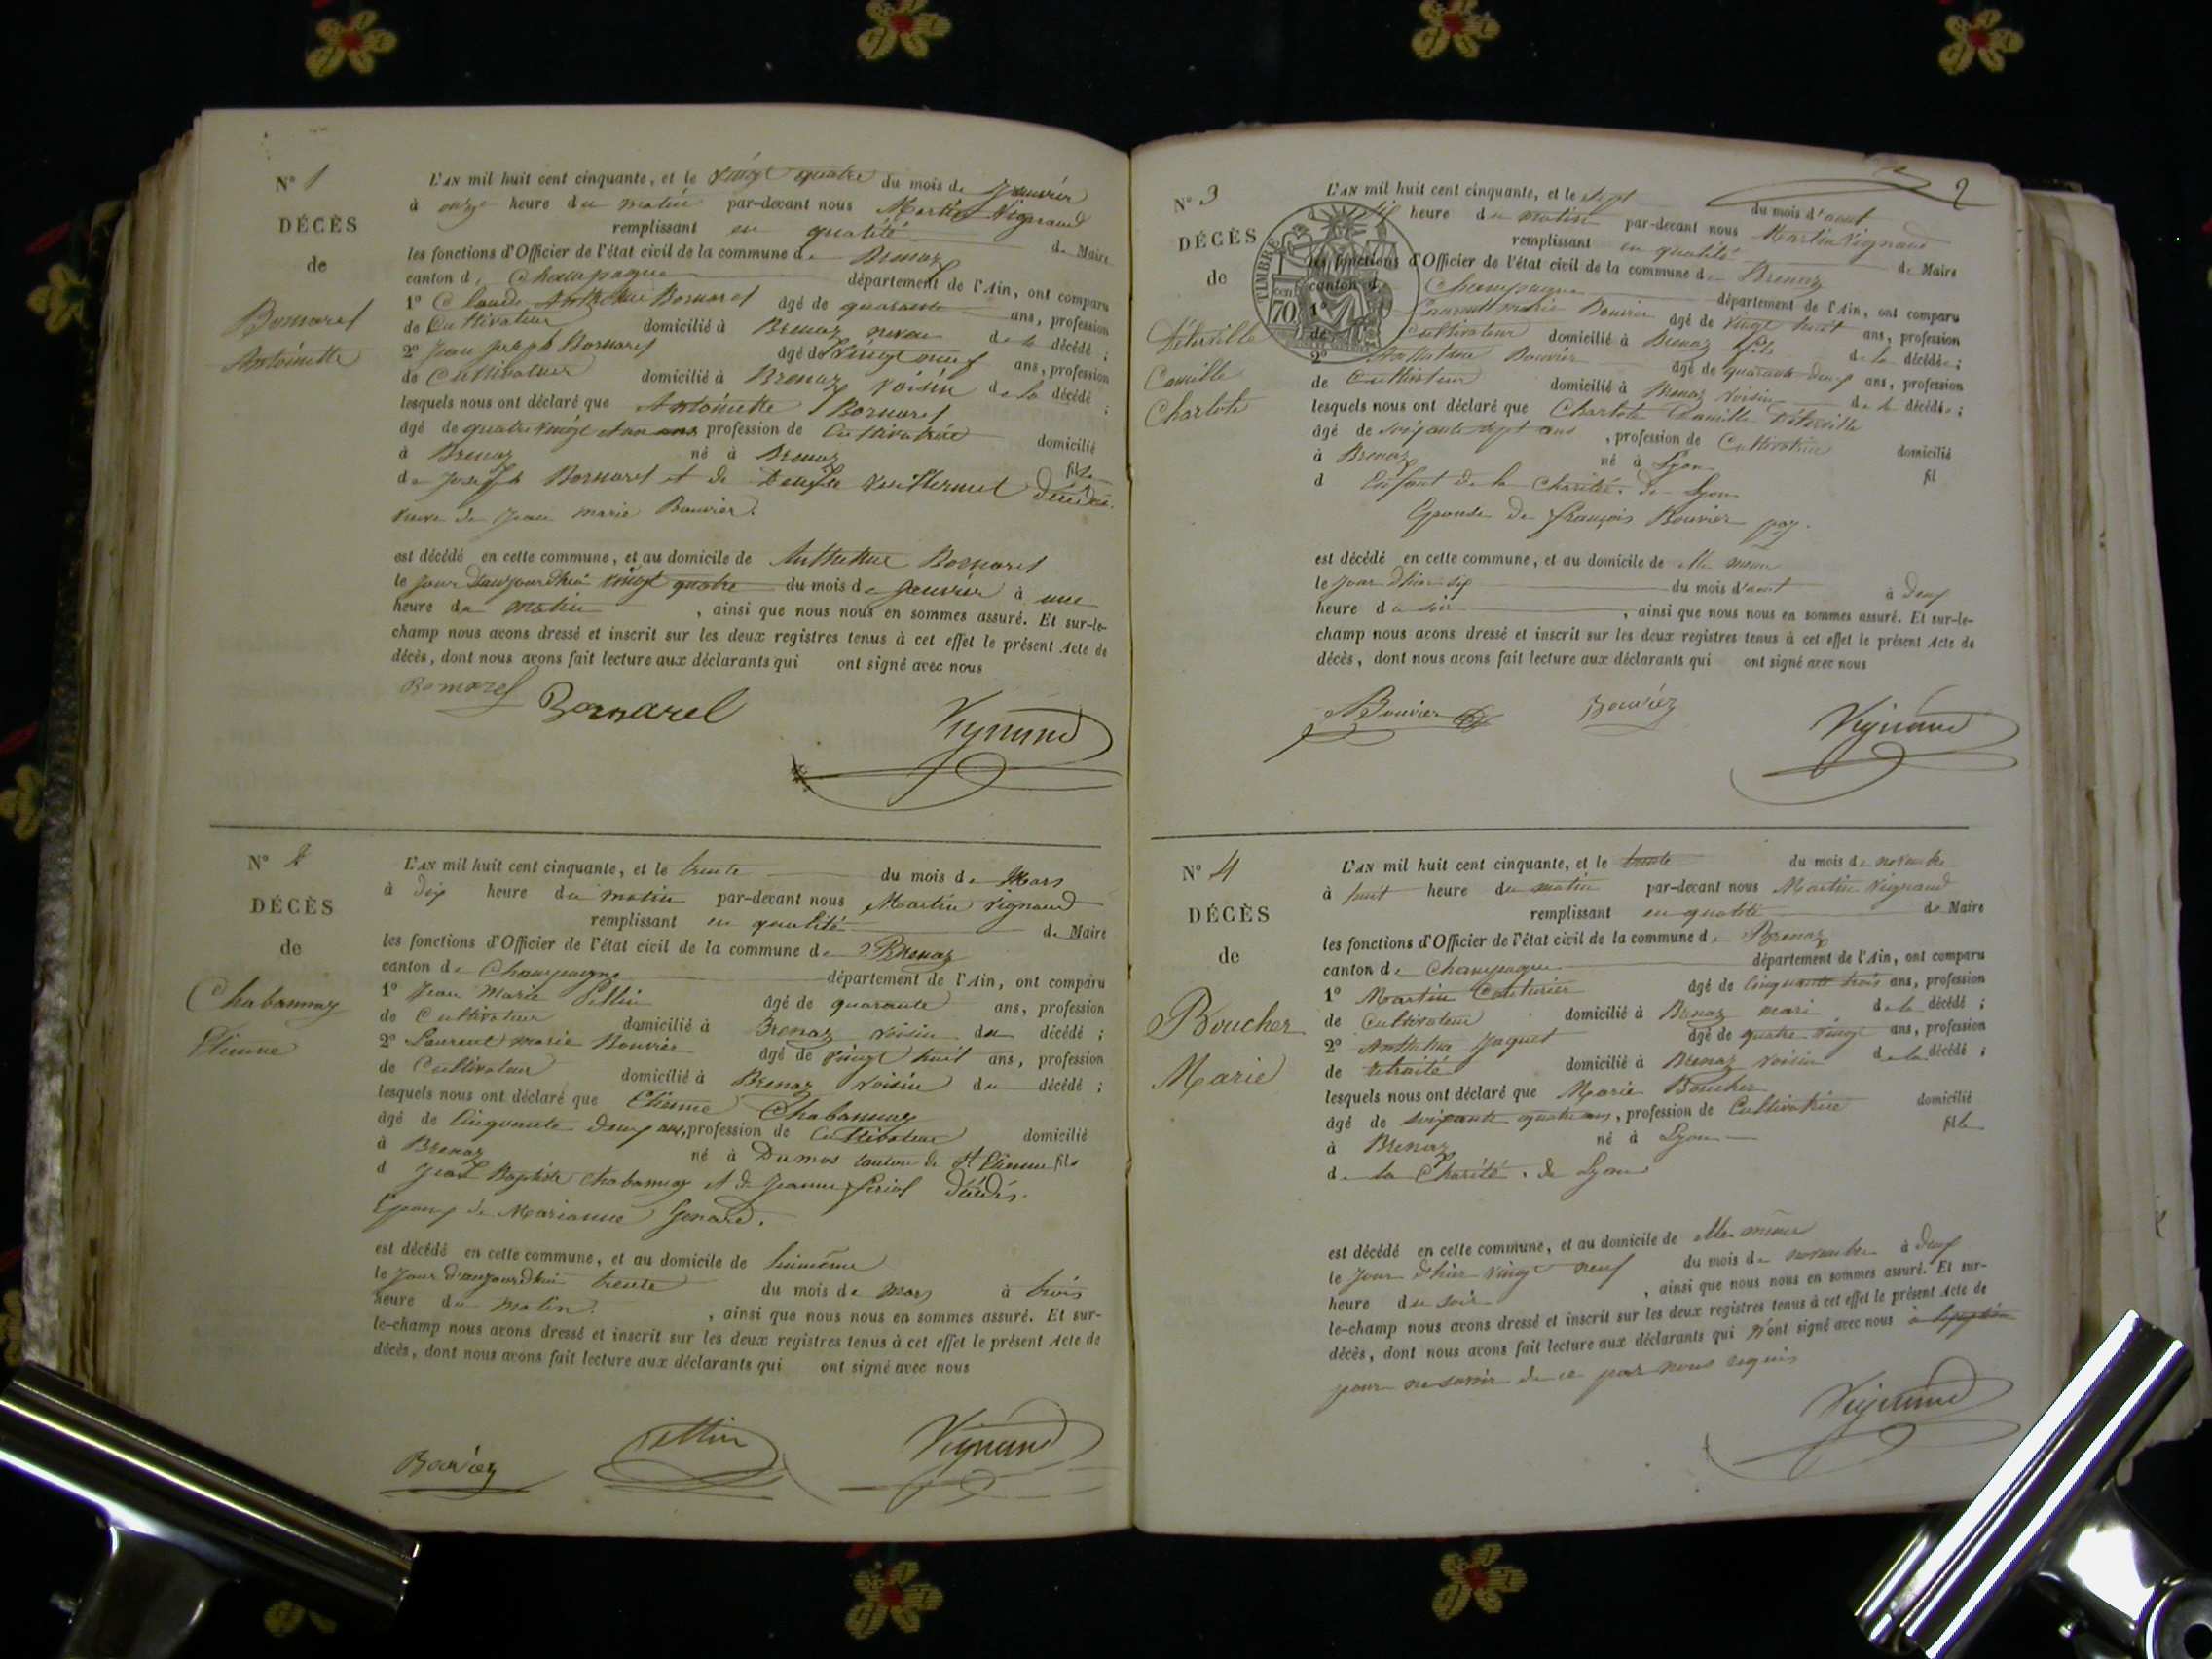 N° 1
DÉCÈS
de
Bornarel
Antoinette
L'AN mil huit cent cinquante, et le vingt quatre du mois de Janvier
à onze heure du matin par-devant nous Martin Vignaud
remplissant en qualité de Maire
les fonctions d'Officier de l'état civil de la commune de Brenaz
canton de Champagne département de l'Ain, ont comparu
1° Claude Anthelme Bornarel âgé de quarante ans, profession
de Cultivateur domicilié à Brenaz neveu de la décédé ;
2° Jean Joseph Bornarel âgé de vingt neuf ans, profession
de Cultivateur domicilié à Brenaz voisin de la décédé ;
lesquels nous ont déclaré que Antoinette Bornarel
âgé de quatre vingt et un ans profession de Cultivatrice domicilié
à Brenaz né à Brenaz fille
de Joseph Bornarel et de décédés.
veuve de Jean Marie Bouvier.
est décédé en cette commune, et au domicile de Anthelme Bornarel
le jour d'aujourd'hui vingt quatre du mois de janvier à une
heure du matin , ainsi que nous nous en sommes assuré. Et sur-le-
champ nous avons dressé et inscrit sur les deux registres tenus à cet effet le présent Acte de
décès, dont nous avons fait lecture aux déclarants qui ont signé avec nous
Bornarel Bornarel Vignaud
N° 2
DÉCÈS
de
Chabannay
Etienne
L'AN mil huit cent cinquante, et le trente du mois de Mars
à dix heure du matin par-devant nous Martin Vignaud
remplissant en qualité de Maire
les fonctions d'Officier de l'état civil de la commune de Brenaz
canton de Champagne département de l'Ain, ont comparu
1° Jean Marie Pettin âgé de quarante ans, profession
de Cultivateur domicilié à Brenaz voisin du décédé ;
2° Laurent Marie Bouvier âgé de vingt huit ans, profession
de Cultivateur domicilié à Brenaz voisin du décédé ;
lesquels nous ont déclaré que Etienne Chabannay
âgé de Cinquante deux ans, profession de Cultivateur domicilié
à Brenaz né à canton de St Etienne fils
d Jean Baptiste Chabannay et de Jeanne décédés.
Epoux de Marianne Genard.
est décédé en cette commune, et au domicile de luimême
le jour d'aujourdhui trente du mois de mars à trois
heure du matin. , ainsi que nous nous en sommes assuré. Et sur-
le-champ nous avons dressé et inscrit sur les deux registres tenus à cet effet le présent Acte de
décès, dont nous avons fait lecture aux déclarants qui ont signé avec nous
Bouvier Pettin Vignaud
2
N° 3
DÉCÈS
de
Camille
Charlote
TIMBRE
70
L'AN mil huit cent cinquante, et le sept du mois d'aout
à dix heure du matin par-devant nous Martin Vignaud
remplissant en qualité de Maire
les fonctions d'Officier de l'état civil de la commune de Brenaz
canton d Champagne département de l'Ain, ont comparu
1° Laurent Marie Bouvier âgé de vingt huit ans, profession
de Cultivateur domicilié à Brenaz fils de la décédée ;
2° Bouvier âgé de quarante deux ans, profession
de Cultivateur domicilié à Brenaz voisin de la décédée ;
lesquels nous ont déclaré que Charlote Camille
âgé de soixante sept ans , profession de Cultivatrice domicilié
à Brenaz né à Lyon fil
d Enfant de la Charité de Lyon
Epouse de françois Bouvier
est décédé en cette commune, et au domicile de elle même
le jour d'hier six du mois d'aout à deux
heure du soir , ainsi que nous nous en sommes assuré. Et sur-le-
champ nous avons dressé et inscrit sur les deux registres tenus à cet effet le présent Acte de
décès, dont nous avons fait lecture aux déclarants qui ont signé avec nous
Bouvier Bouvier Vignaud
N° 4
DÉCÈS
de
Boucher
Marie
L'AN mil huit cent cinquante, et le trente du mois de novembre
à huit heure du matin par-devant nous Martin Vignaud
remplissant en qualité de Maire
les fonctions d'Officier de l'état civil de la commune de Brenaz
canton de Champagne département de l'Ain, ont comparu
1° Martin Couturier âgé de cinquante trois ans, profession
de Cultivateur domicilié à Brenaz mari de la décédé ;
2° Anthelme Jaquet âgé de quatre vingt ans, profession
de retraité domicilié à Brenaz voisin de la décédé ;
lesquels nous ont déclaré que Marie Boucher
âgé de soixante quatre ans, profession de Cultivatrice domicilié
à Brenaz né à Lyon fille
de la Charité de Lyon
est décédé en cette commune, et au domicile de elle même
le jour d'hier vingt neuf du mois de novembre à deux
heure du soir , ainsi que nous nous en sommes assuré. Et sur-
le-champ nous avons dressé et inscrit sur les deux registres tenus à cet effet le présent Acte de
décès, dont nous avons fait lecture aux déclarants qui n'ont signé avec nous
pour ne savoir de ce par nous requis
Vignaud